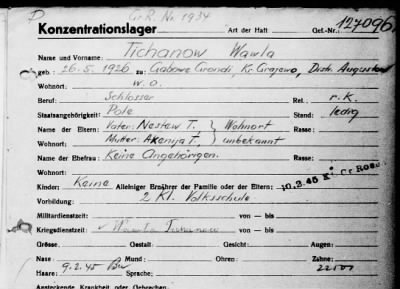 P Gr.R. Nr. 1934
Konzentrationslager Art der Haft Gef.-Nr.: 127096
Name und Vorname: Tichanow Wawla
geb.: 26.5. 1926 zu: Gabowe Grondi, Kr. Grajewo, Distr. Augustow
Wohnort: w. o.
Beruf: Schlosser Rel.: r. k.
Staatsangehörigkeit: Pole Stand: ledig
Name der Eltern: Vater: Nestew T. } Wohnort Rasse:
Wohnort: Mutter: Akenja T. } unbekannt
Name der Ehefrau: Keine Angehörigen. Rasse:
Wohnort: 10.2.45 Kl. Gr Rosen
Kinder: Keine Alleiniger Ernährer der Familie oder der Eltern:
Vorbildung: 2 Kl. Volksschule.
Militärdienstzeit: von — bis
Kriegsdienstzeit: Wawla Tichanow von — bis
Grösse: Gestalt: Gesicht: Augen:
Nase: Mund: Ohren: Zähne:
Haare: 9.2.45 Sprache:
Ansteckende Krankheit oder Gebrechen: